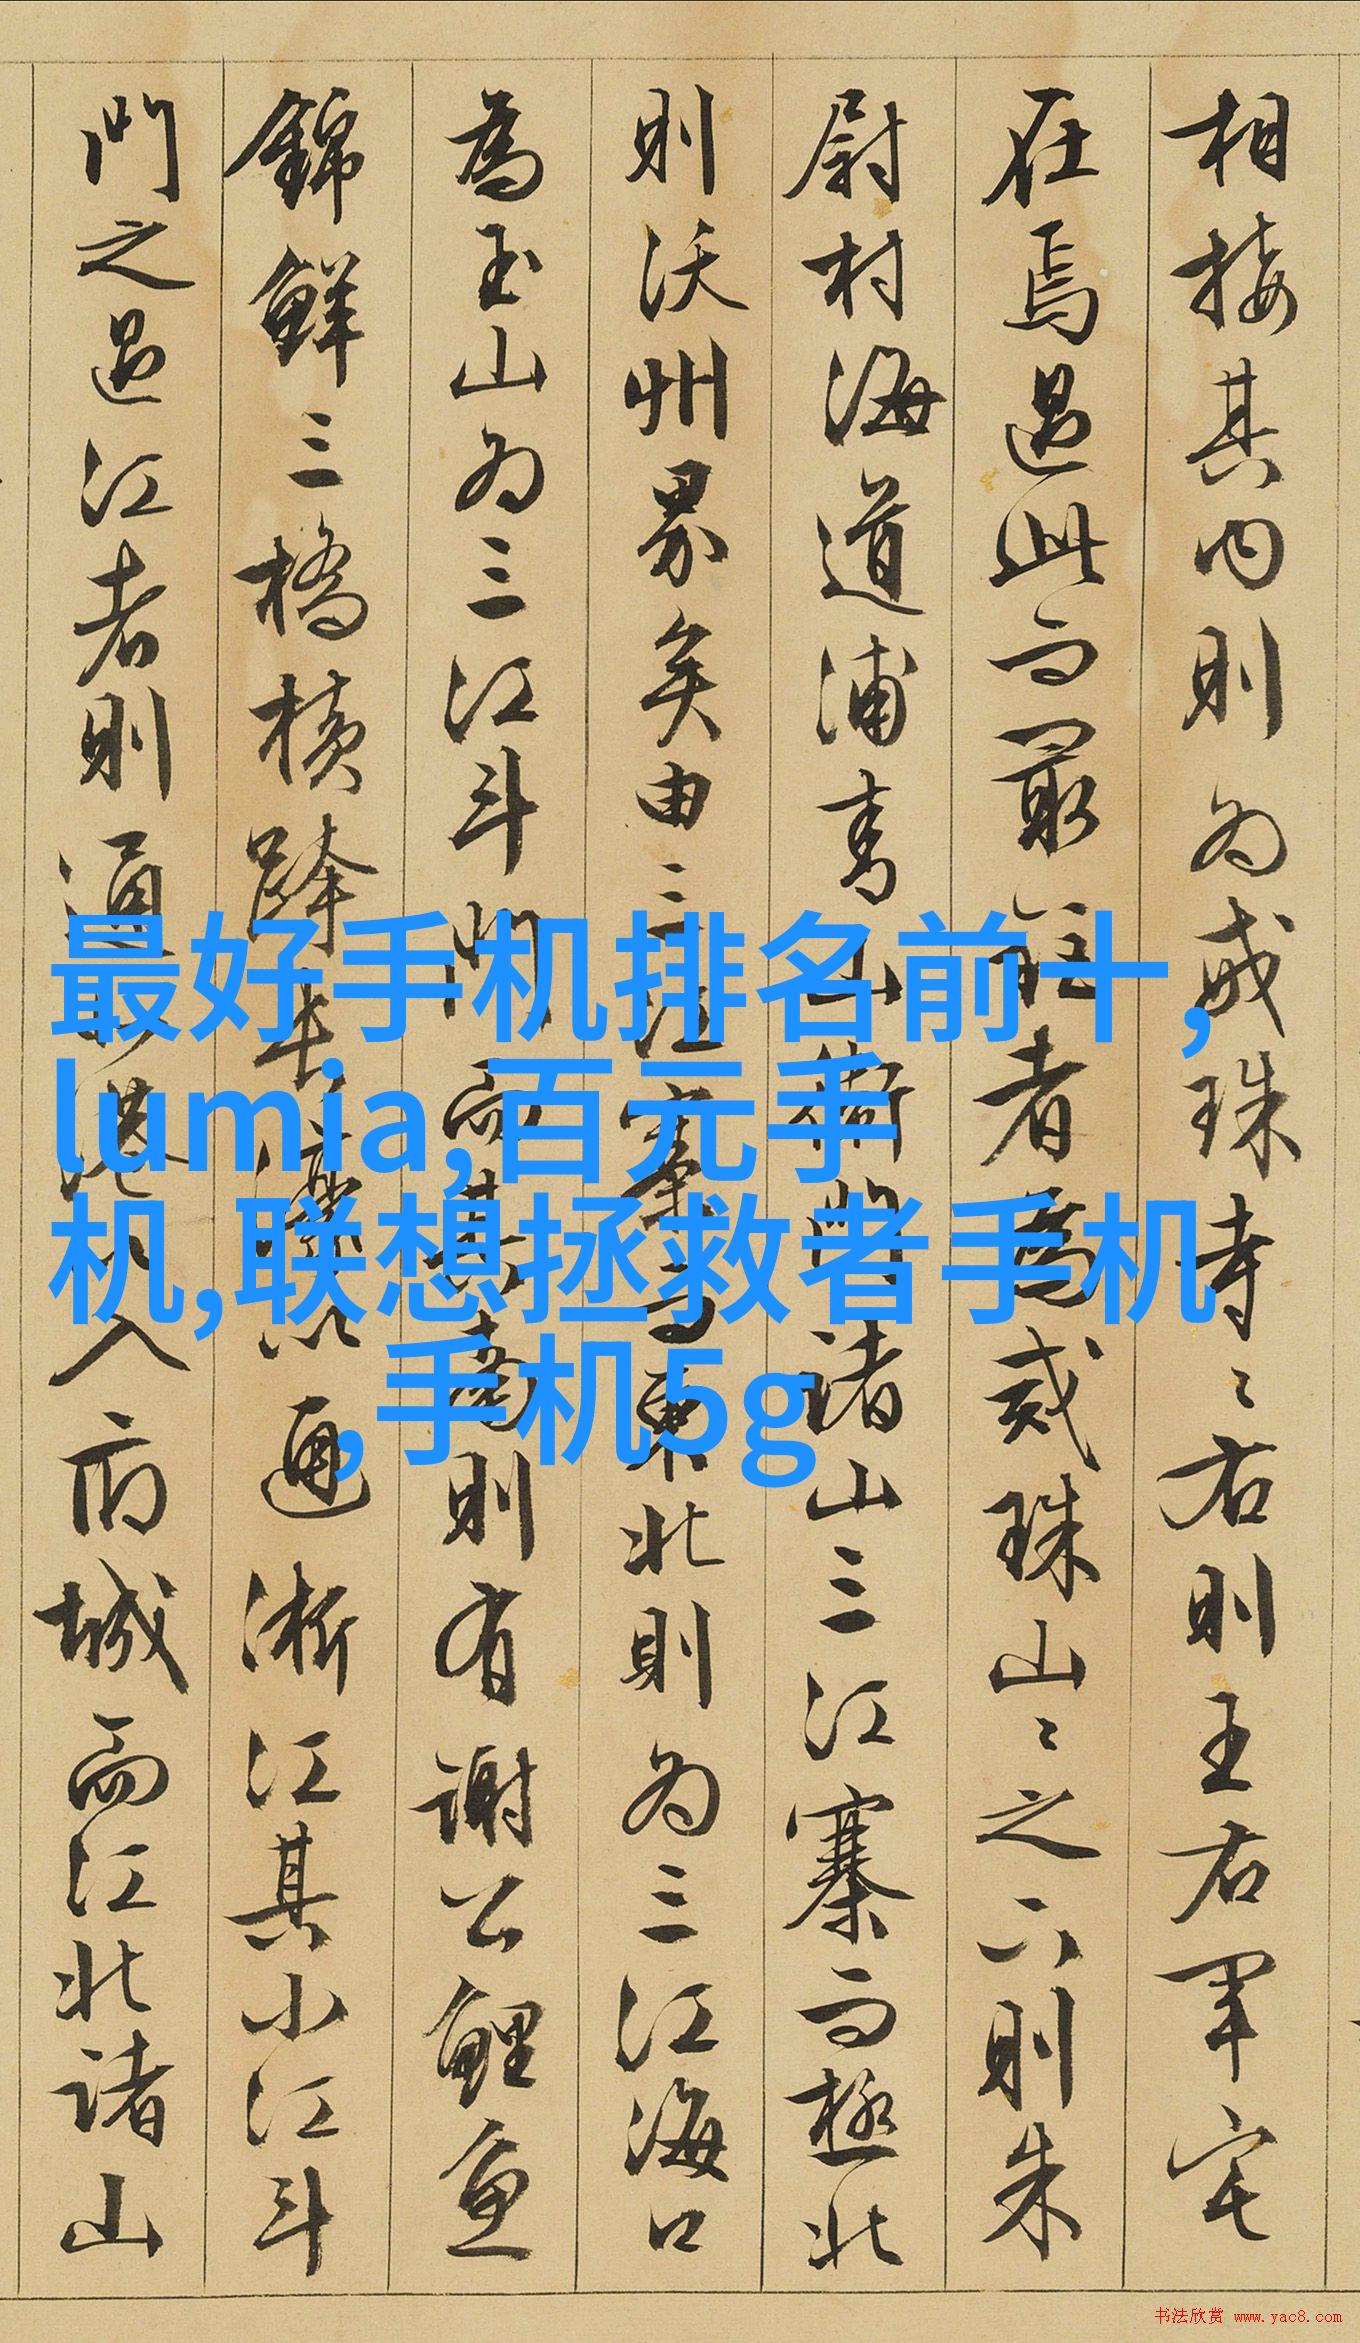 相接其内則為戒珠寺〻右則王右軍宅
在焉過此而最
者為戒珠山〻之下則朱
尉村海道浦
山
諸山三江寨而極北
則沃州界矣由三江
東北則為三江海口
為玉山為三江斗門而其南則有謝公鯉魚
錦鮮三橋橫跨
通浙江其小江斗
門之過江者則通
入府城而江北諸山
最好手机排名前十,
lumia,百元手
机,联想拯救者手机
,手机5g
书法欣赏 www.yac8.com